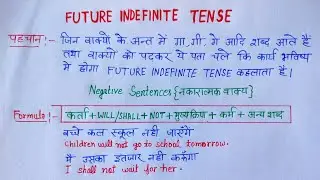 FUTURE INDEFINITE TENSE
पहचान:- जिन वाक्यो के अन्त में गा.गी.गे आदि शब्द आते हैं
तथा वाक्यो को पढकर ये पता चले कि कार्य भविष्य
में होगा FUTURE INDEFINITE TENSE कहलाता हैं।
Negative Sentences {नकारात्मक वाक्य}
Formula:- कर्ता + WILL/SHALL + NOT + मुख्यक्रिया + कर्म + अन्य शब्द
बच्चे कल स्कूल नही जाएँगे
Children will not go to school tomorrow.
मैं उसका इंतजार नहीं करूँगा
I shall not wait for her.